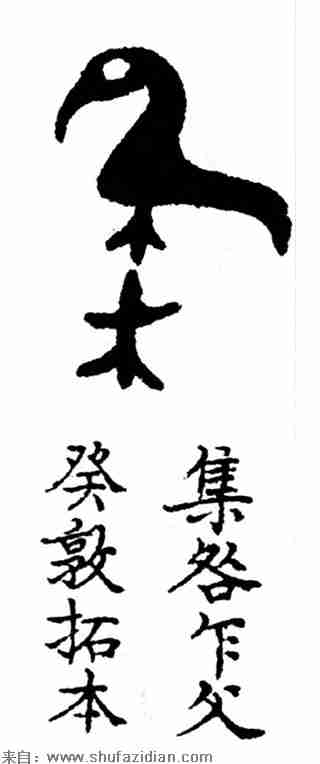 集
集咎乍父
癸敦拓本
来自：www.shufazidian.com